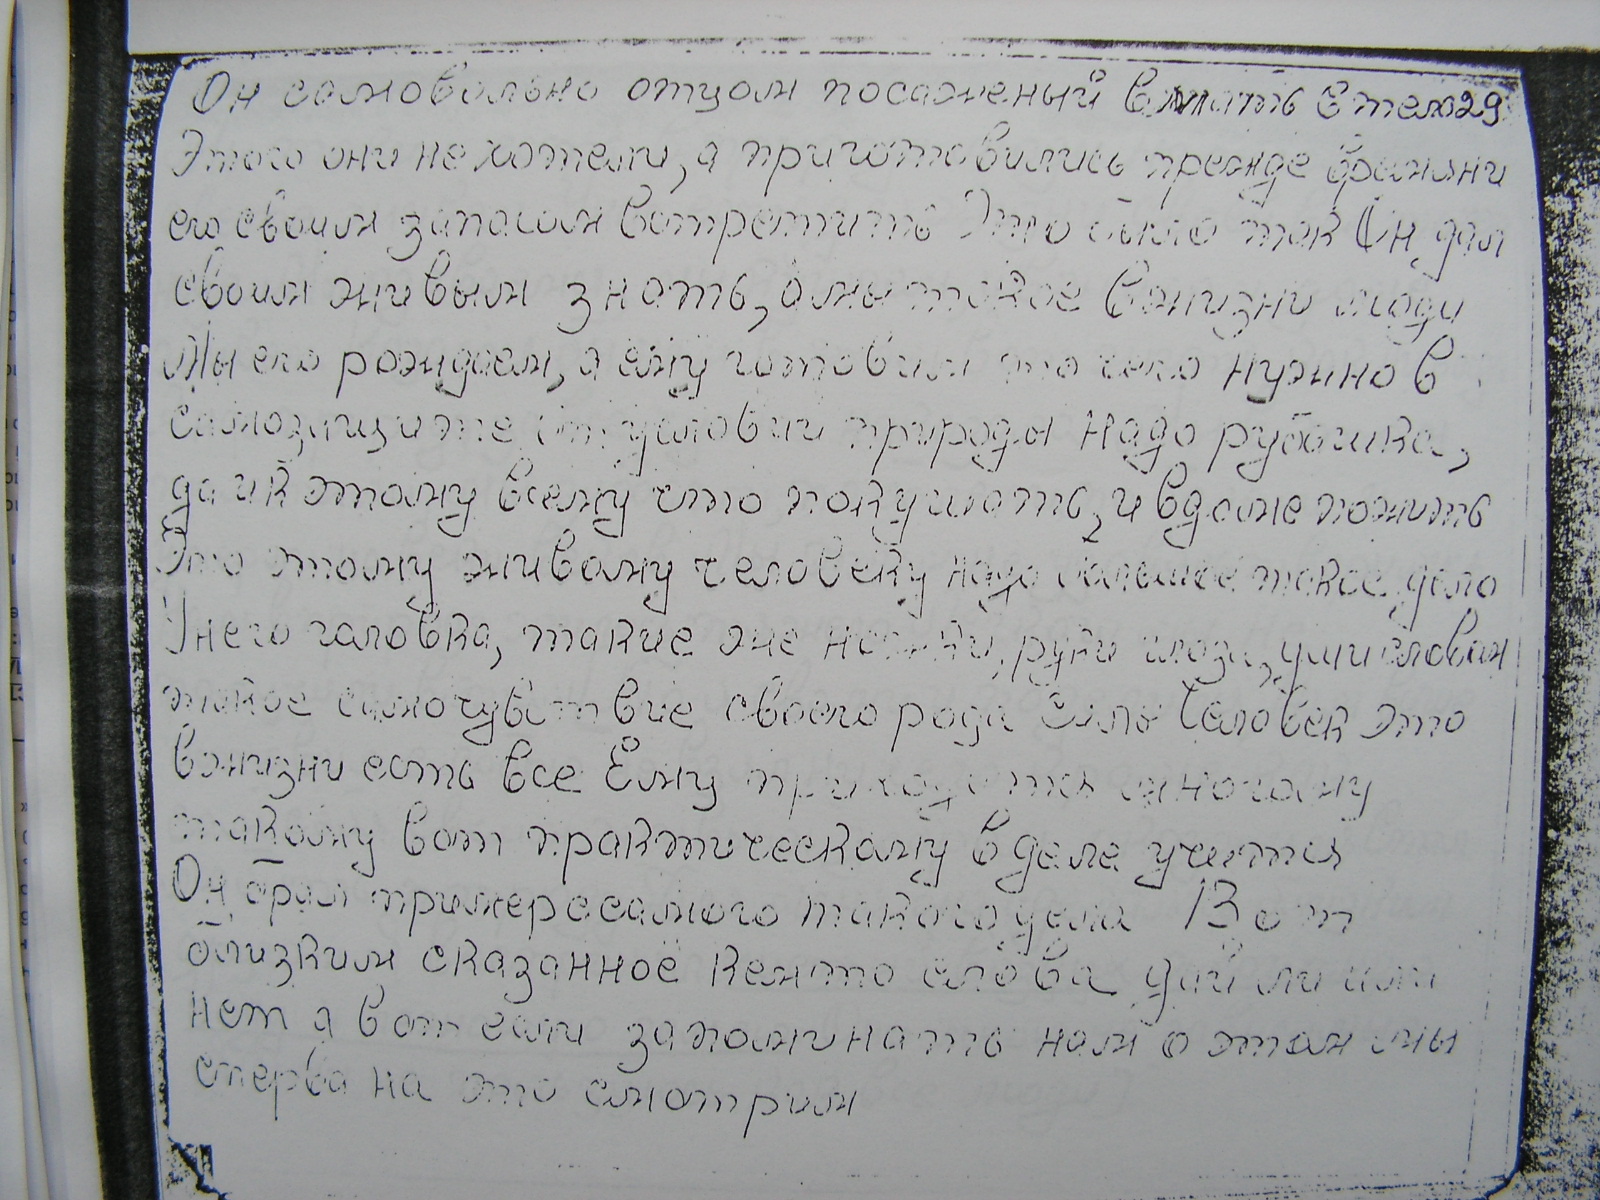 Он самовольно отцом посаженый вмать стелом 29
Этого они нехотели, а приготовились прежде времяни
его своим запасом встретить Это было так Он дал
своим живым знать, а мы такое вжизни люди
Мы его рождаем, а ему готовим это чего нужно в
самозащите от условии природы Надо рубашка,
да ик этому всему что покушать, и вдоме пожить
Это этому живому человеку надо большое такое дело
Унего головка, такие же ножки, руки глаза, уши словом
такое самочувствие своего рода Силы Человек это
вжизни есть все Ему приходится многому
такому вот практическому вделе учится
Он брал пример ссамого такого дела Вот
близким сказанное кемто слова дай ли или
нет а вот если запоминать нам о этом мы
сперва на это смотрим